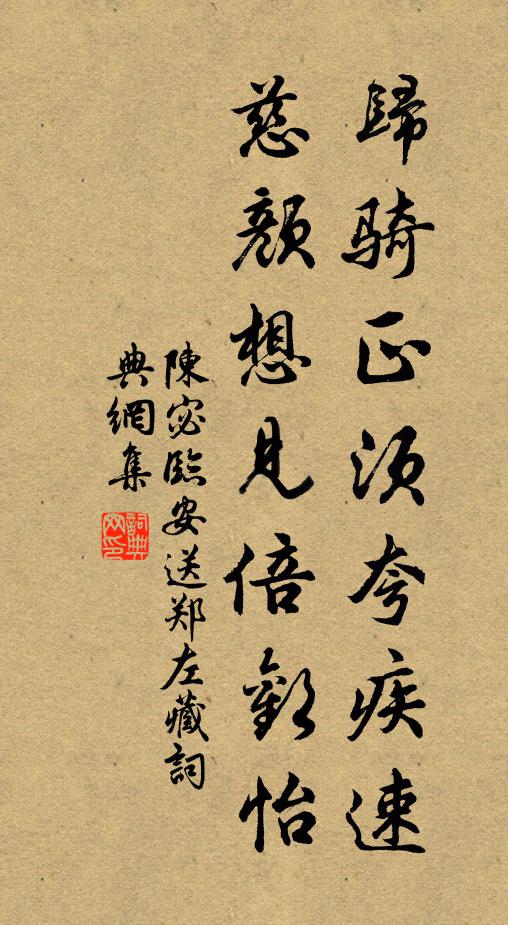 歸骑正须夸疾速
慈颜想見倍歡怡
陳宓臨安送郑左藏詞
典網集
詞典网印